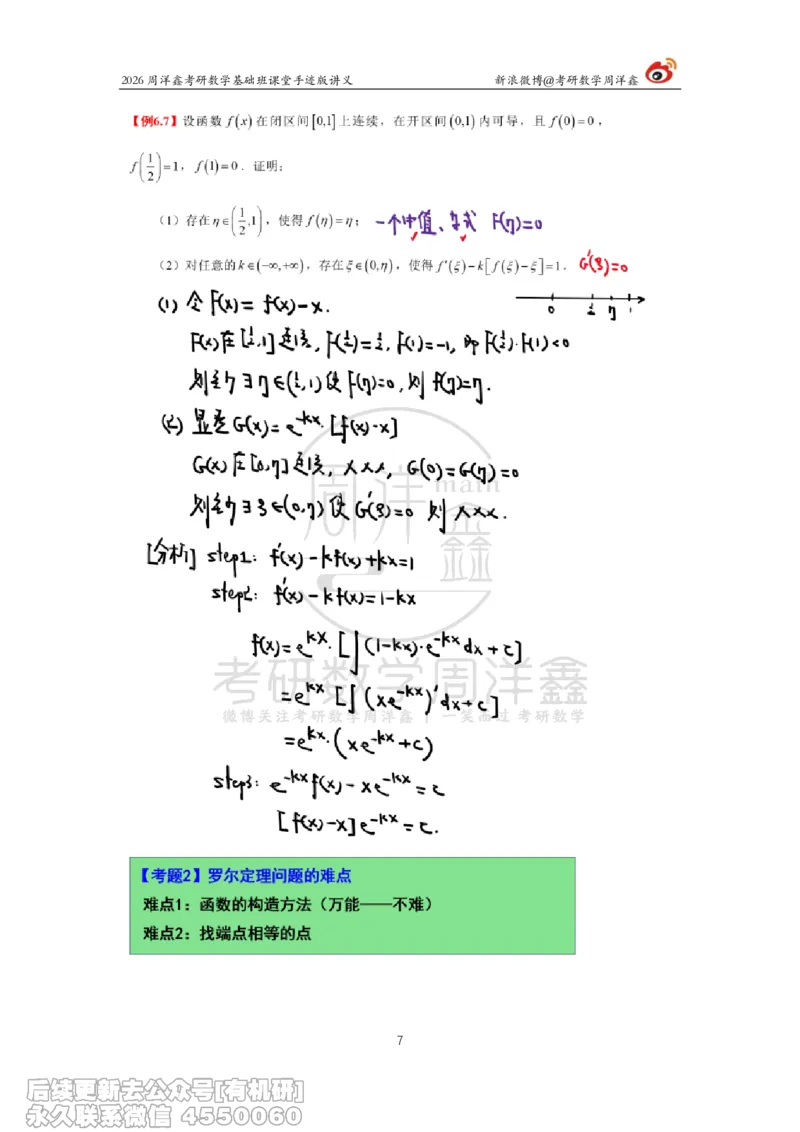 2026 周洋鑫考研数学基础班课堂手迹版讲义 新浪微博@考研数学周洋鑫
【例6.7】设函数 f(x) 在闭区间[0,1]上连续，在开区间(0,1)内可导，且 f(0)=0，
f(1/2)=1，f(1)=0．证明：
（1）存在η∈(1/2,1)，使得f(η)=η； 一个中值、等式 F(η)=0
（2）对任意的k∈(-∞,+∞)，存在ξ∈(0,η)，使得f′(ξ)-k[f(ξ)-ξ]=1． G′(ξ)=0
0 1/2 η 1
(1) 令 F(x)= f(x)-x.
F(x)在[1/2,1]连续, F(1/2)=1/2, F(1)=-1, 即 F(1/2)·F(1)<0
则至少∃η∈(1/2,1)使F(η)=0, 则 f(η)=η.
(2) 显然 G(x)= e^{-kx}·[f(x)-x]
G(x)在[0,η]连续, ×××, G(0)=G(η)=0
则至少∃ξ∈(0,η)使G′(ξ)=0 则×××.
[分析] step1: f′(x)-kf(x)+kx=1
step2: f′(x)-kf(x)=1-kx
f(x)=e^{kx}·[∫(1-kx)·e^{-kx}dx+c]
=e^{kx}[∫(xe^{-kx})′dx+c]
=e^{kx}·(xe^{-kx}+c)
step3: e^{-kx}f(x)-xe^{-kx}=c
[f(x)-x]e^{-kx}=c.
周洋鑫 math
考研数学周洋鑫
微博关注考研数学周洋鑫 | 一笑而过 考研数学
【考题2】罗尔定理问题的难点
难点1：函数的构造方法（万能——不难）
难点2：找端点相等的点
7
后续更新去公众号[有机研]
永久联系微信 4550060